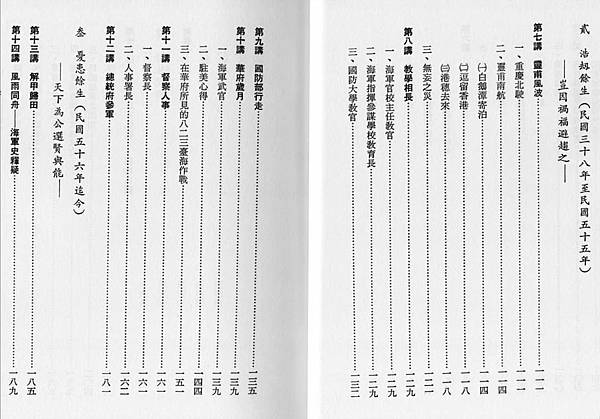 貳 浩劫餘生(民國三十八年至民國五十五年)
——豈因禍福避趨之——
第七講 靈甫風波……一一一
一、重慶北駛……一一一
二、靈甫南航……一一四
㈠白鵝潭寄泊……一一四
㈡逗留香港……一一八
㈢港穗去來……一一八
三、無妄之災……一二一
第八講 教學相長……一二九
一、海軍官校主任教官……一二九
二、海軍指揮參謀學校教育長……一二九
三、國防大學教官……一三二
第九講 國防部行走……一三五
第十講 華府歲月……一三九
一、海軍武官……一三九
二、駐美心得……一四四
三、在華府所見的八二三臺海作戰……一五一
第十一講 督察人事……一六一
一、督察長……一六一
二、人事署長……一六二
第十二講 總統府參軍……一八一
叁 憂患餘生(民國五十六年迄今)
——天下為公選賢與能——
第十三講 解甲歸田……一八五
第十四講 風雨同舟——海軍史釋疑……一八九